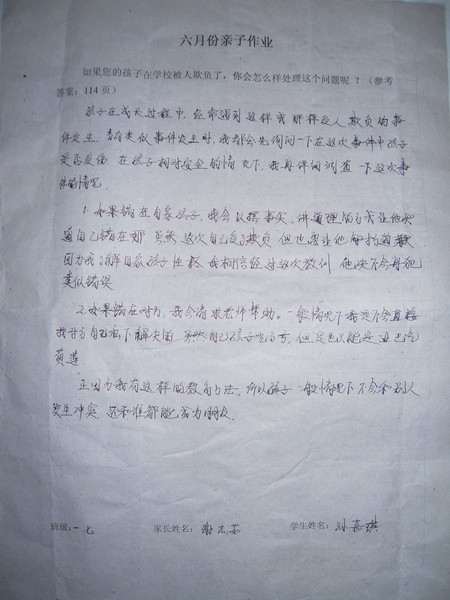 六月份亲子作业
如果您的孩子在学校被人欺负了，你会怎么样处理这个问题呢？（参考
答案：114 页）
孩子在成长过程中，经常遇到这样或那样被人欺负的事
件发生。当有类似事件发生时，我都会先询问一下在这次事件中孩子
是否受伤，在孩子相对安全的情况下，我再详细调查一下这次事
件的情况。
1. 如果错在自家孩子，我会以摆事实、讲道理的方式让他知
道自己错在哪 虽然这次自己受了欺负 但也要让他向对方道歉
因为我了解自家孩子性格 我相信经过这次教训 他决不会再犯
类似错误
2. 如果错在对方，我会请求老师帮助。一般情况下我是不会直接
找对方自己私下解决的 虽然自己孩子吃了亏，但是也只能是哑巴吃
黄莲
正因为我有这样的教育方法，所以孩子一般情况下不会和别人
发生冲突 还和谁都能成为朋友.
班级：一七 家长姓名：谢志茹 学生姓名：孙嘉琪